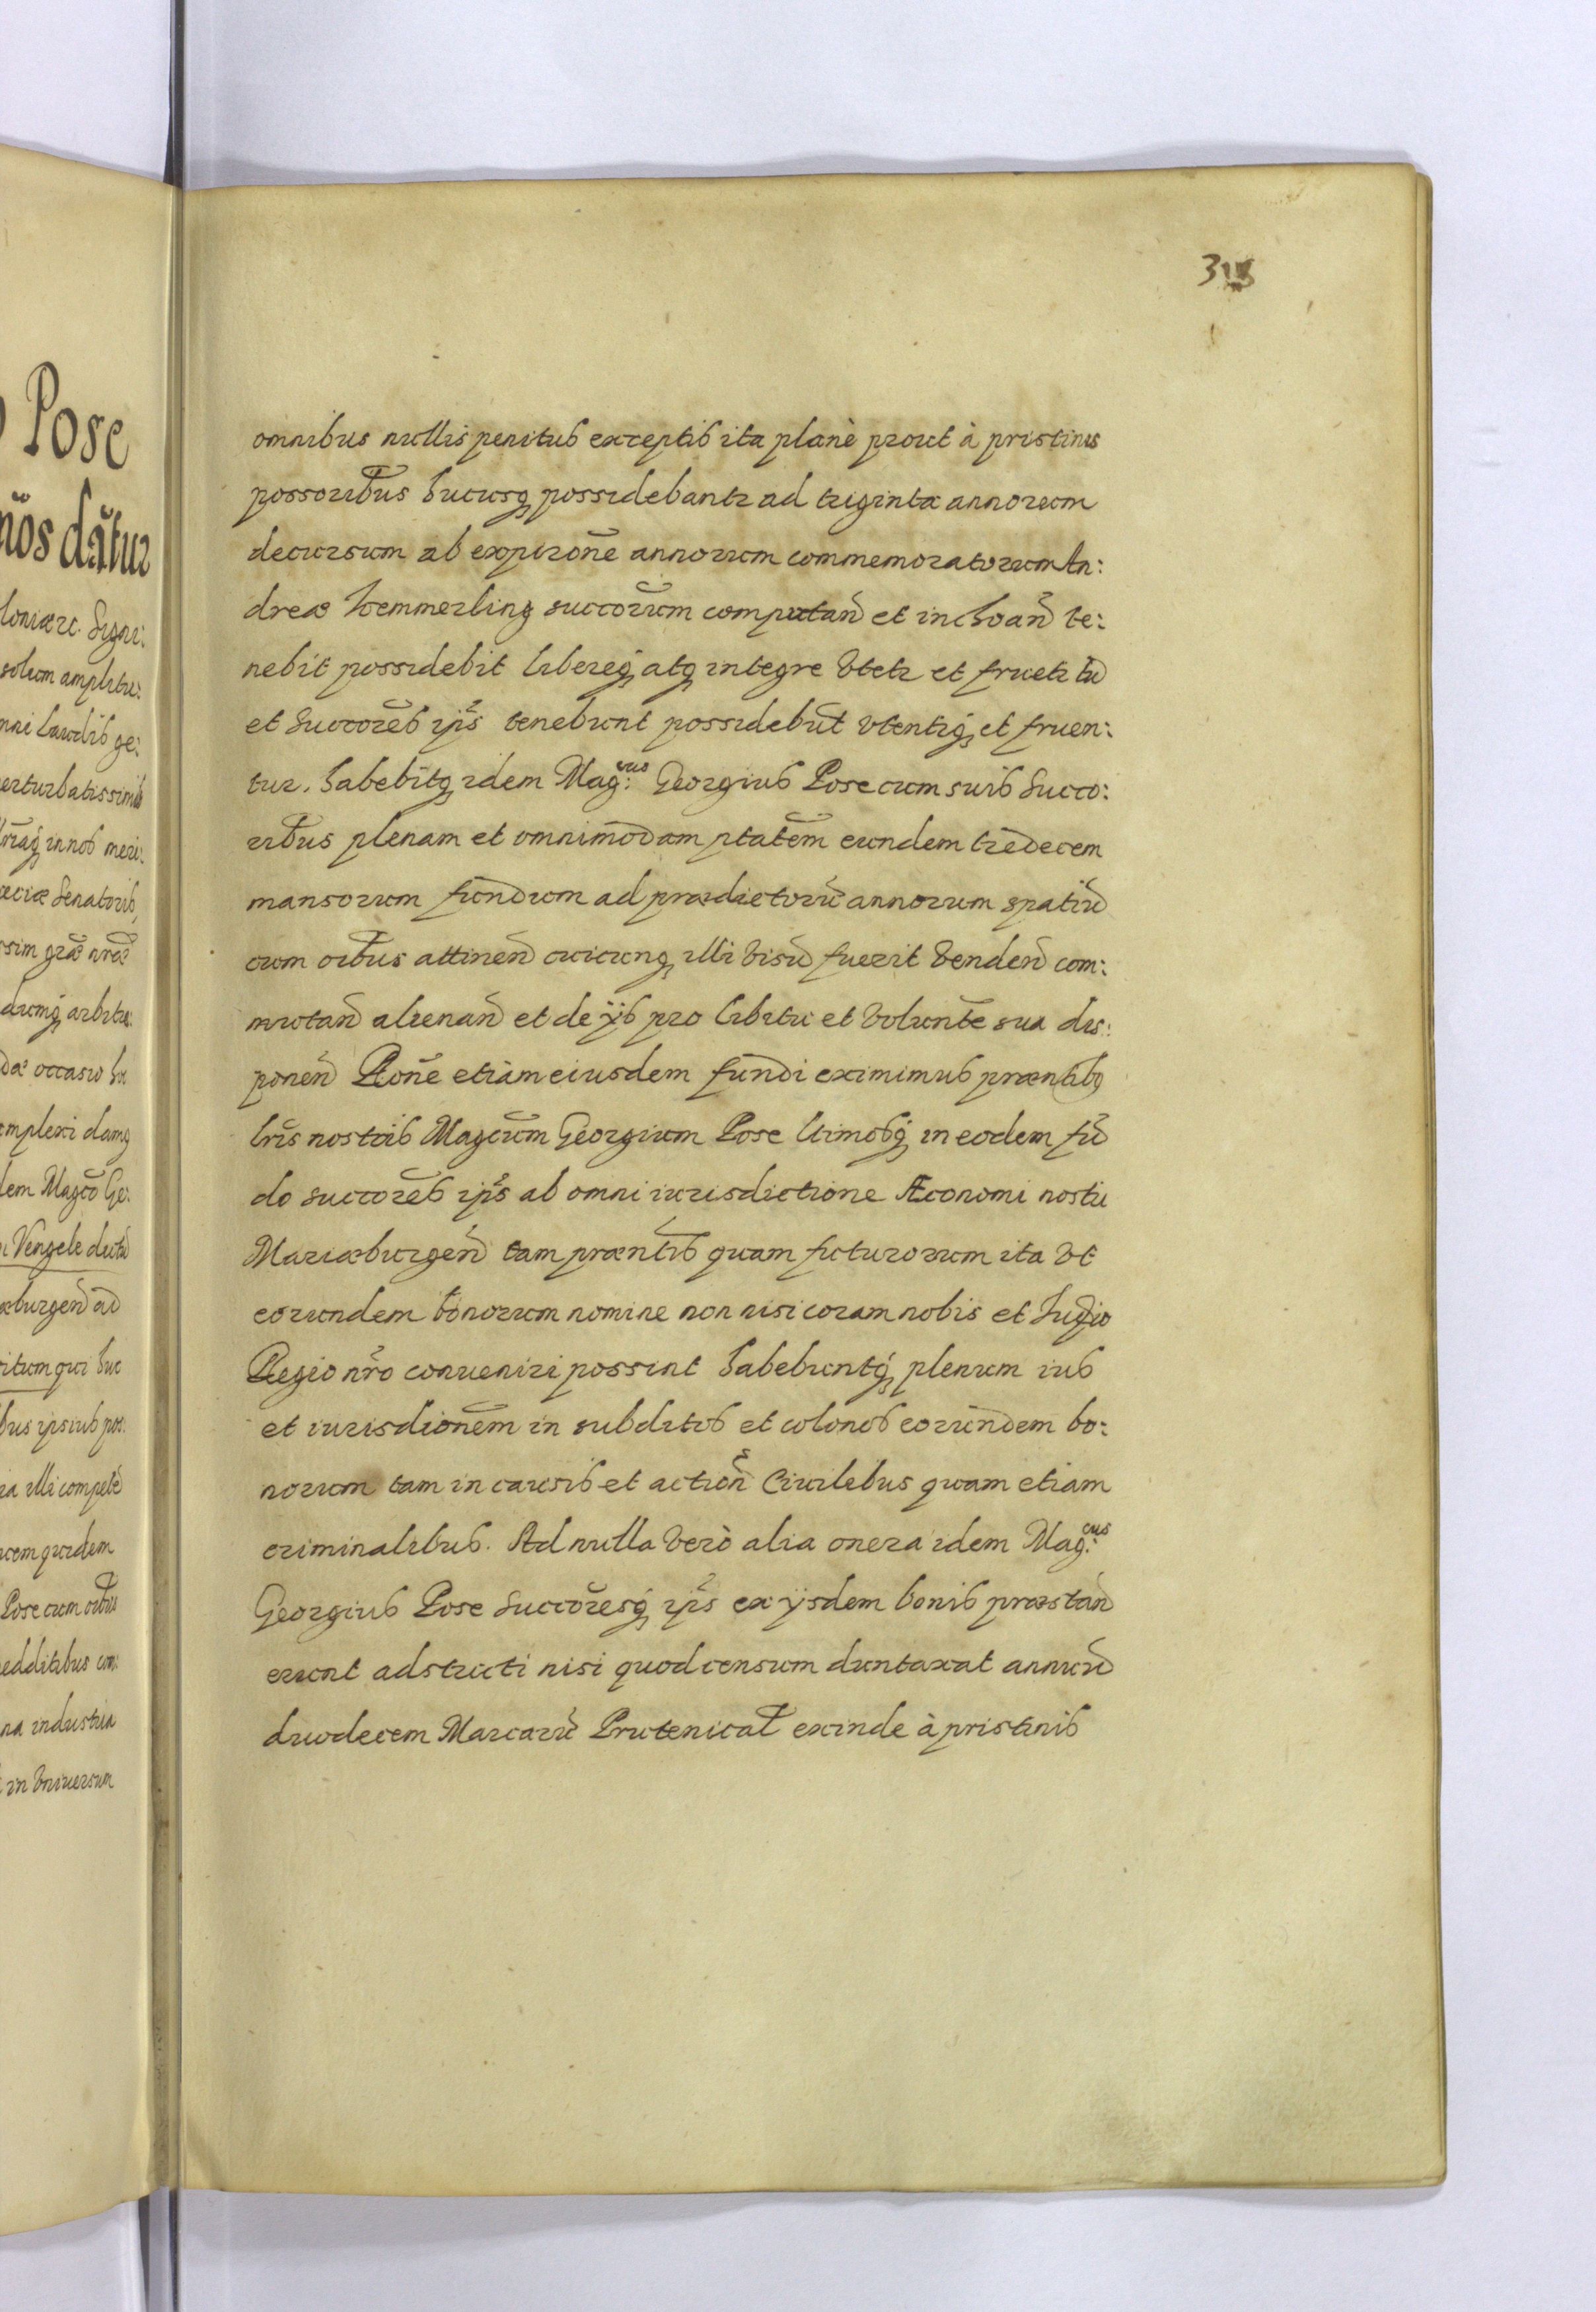 Pose
nōs dãtur
loniæ ꝛc. Signi:
solum amplitu:
mni laudis ge:
erturbatissimis
in nos meri:
æciæ Senatoris,
ssim grae nrae
dumq̨ arbitra:
occasio ha
mplexi damq̨
dem Magco Ge:
i Vengele dictū
æburgeñ ad
ritum qui huc
bus ipsius pos:
ia illi competē
quidem
Pose cum oĩbus
redditibus con:
na industria
in vniuersum
318
omnibus nullis penitus exceptis ita planè prout à pristinis
possoribus hucusq̨ possidebantr ad triginta annorum
decursum ab expirōne annorum commemoratorum An:
dreæ Hemmerling succorum computañ et inchoañ te:
nebit possidebit libereq̨ atq̨ integre vtetr et fruetr tū
et Succores ip̃s tenebunt possidebūt vtentrq̨ et fruen:
tur. habebitq̨ idem Mag:cus Georgius Pose cum suis Succo:
ribus plenam et omnimodam ptatem eundem tredecem
mansorum fundum ad prædictorū annorum spatiū
cum oĩbus attineñ cuicunq̨ illi visū fuerit vendeñ com:
mutañ alienañ et de ijs pro libitu et voluntē sua dis:
poneñ Rōne etiam eiusdem fundi eximimus præntibq̨
lrīs nostris Magcum Georgium Pose vtimosq̨ in eodem fū
do succores ip̃s ab omni iurisdictione Æconomi nostri
Mariæburgeñ tam præntis quam futurorum ita vt
eorundem bonorum nomine non nisi coram nobis et Iudio
Regio nr̃o conueniri possint habebuntq̨ plenum ius
et iurisdionem in subditos et colonos eorundem bo:
norum tam in causis et actioñ Ciuilebus quam etiam
criminalibus. Ad nulla verò alia onera idem Mag:cus
Georgius Pose Succoresq̨ ip̃s ex ijsdem bonis præstañ
erunt adstricti nisi quod censum duntaxat annuū
duodecem Marcarū Prutenical exinde à pristinis